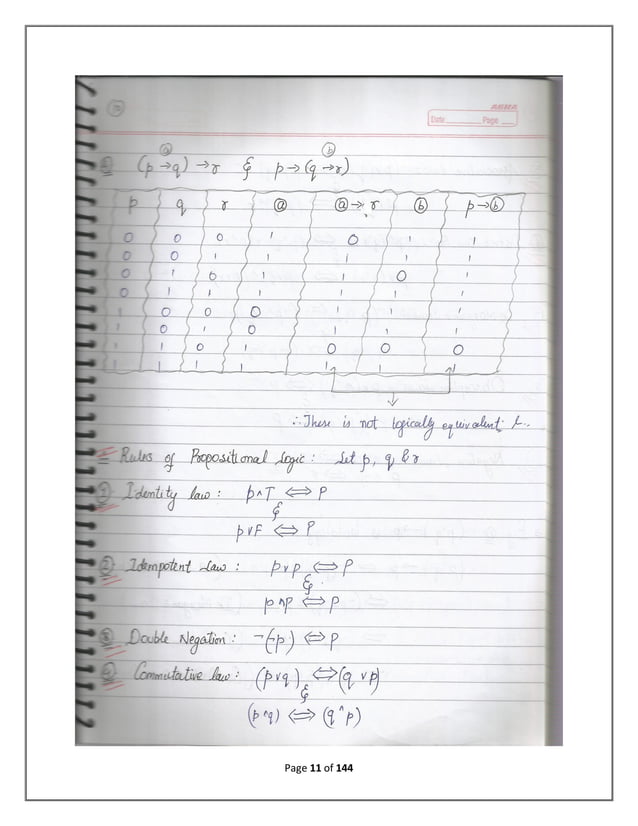 ASHA
Date Page
ⓐ ⓑ
(p→q)→r & p→(q→r)
p q r ⓐ ⓐ→r ⓑ p→ⓑ
0 0 0 1 0 1 1
0 0 1 1 1 1 1
0 1 0 1 1 0 1
0 1 1 1 1 1 1
1 0 0 0 1 1 1
1 0 1 0 1 1 1
1 1 0 1 0 0 0
1 1 1 1 1 1 1
∴ There is not logically equivalent
= Rules of Propositional Logic: Let p, q & r
① Identity law: p∧T ⟺ P
&
p∨F ⟺ P
② Idempotent Law: p∨p ⟺ P
&
p∧p ⟺ P
③ Double Negation: ¬(¬p) ⟺ P
④ Commutative law: (p∨q) ⟺ (q∨p)
&
(p∧q) ⟺ (q∧p)
Page 11 of 144